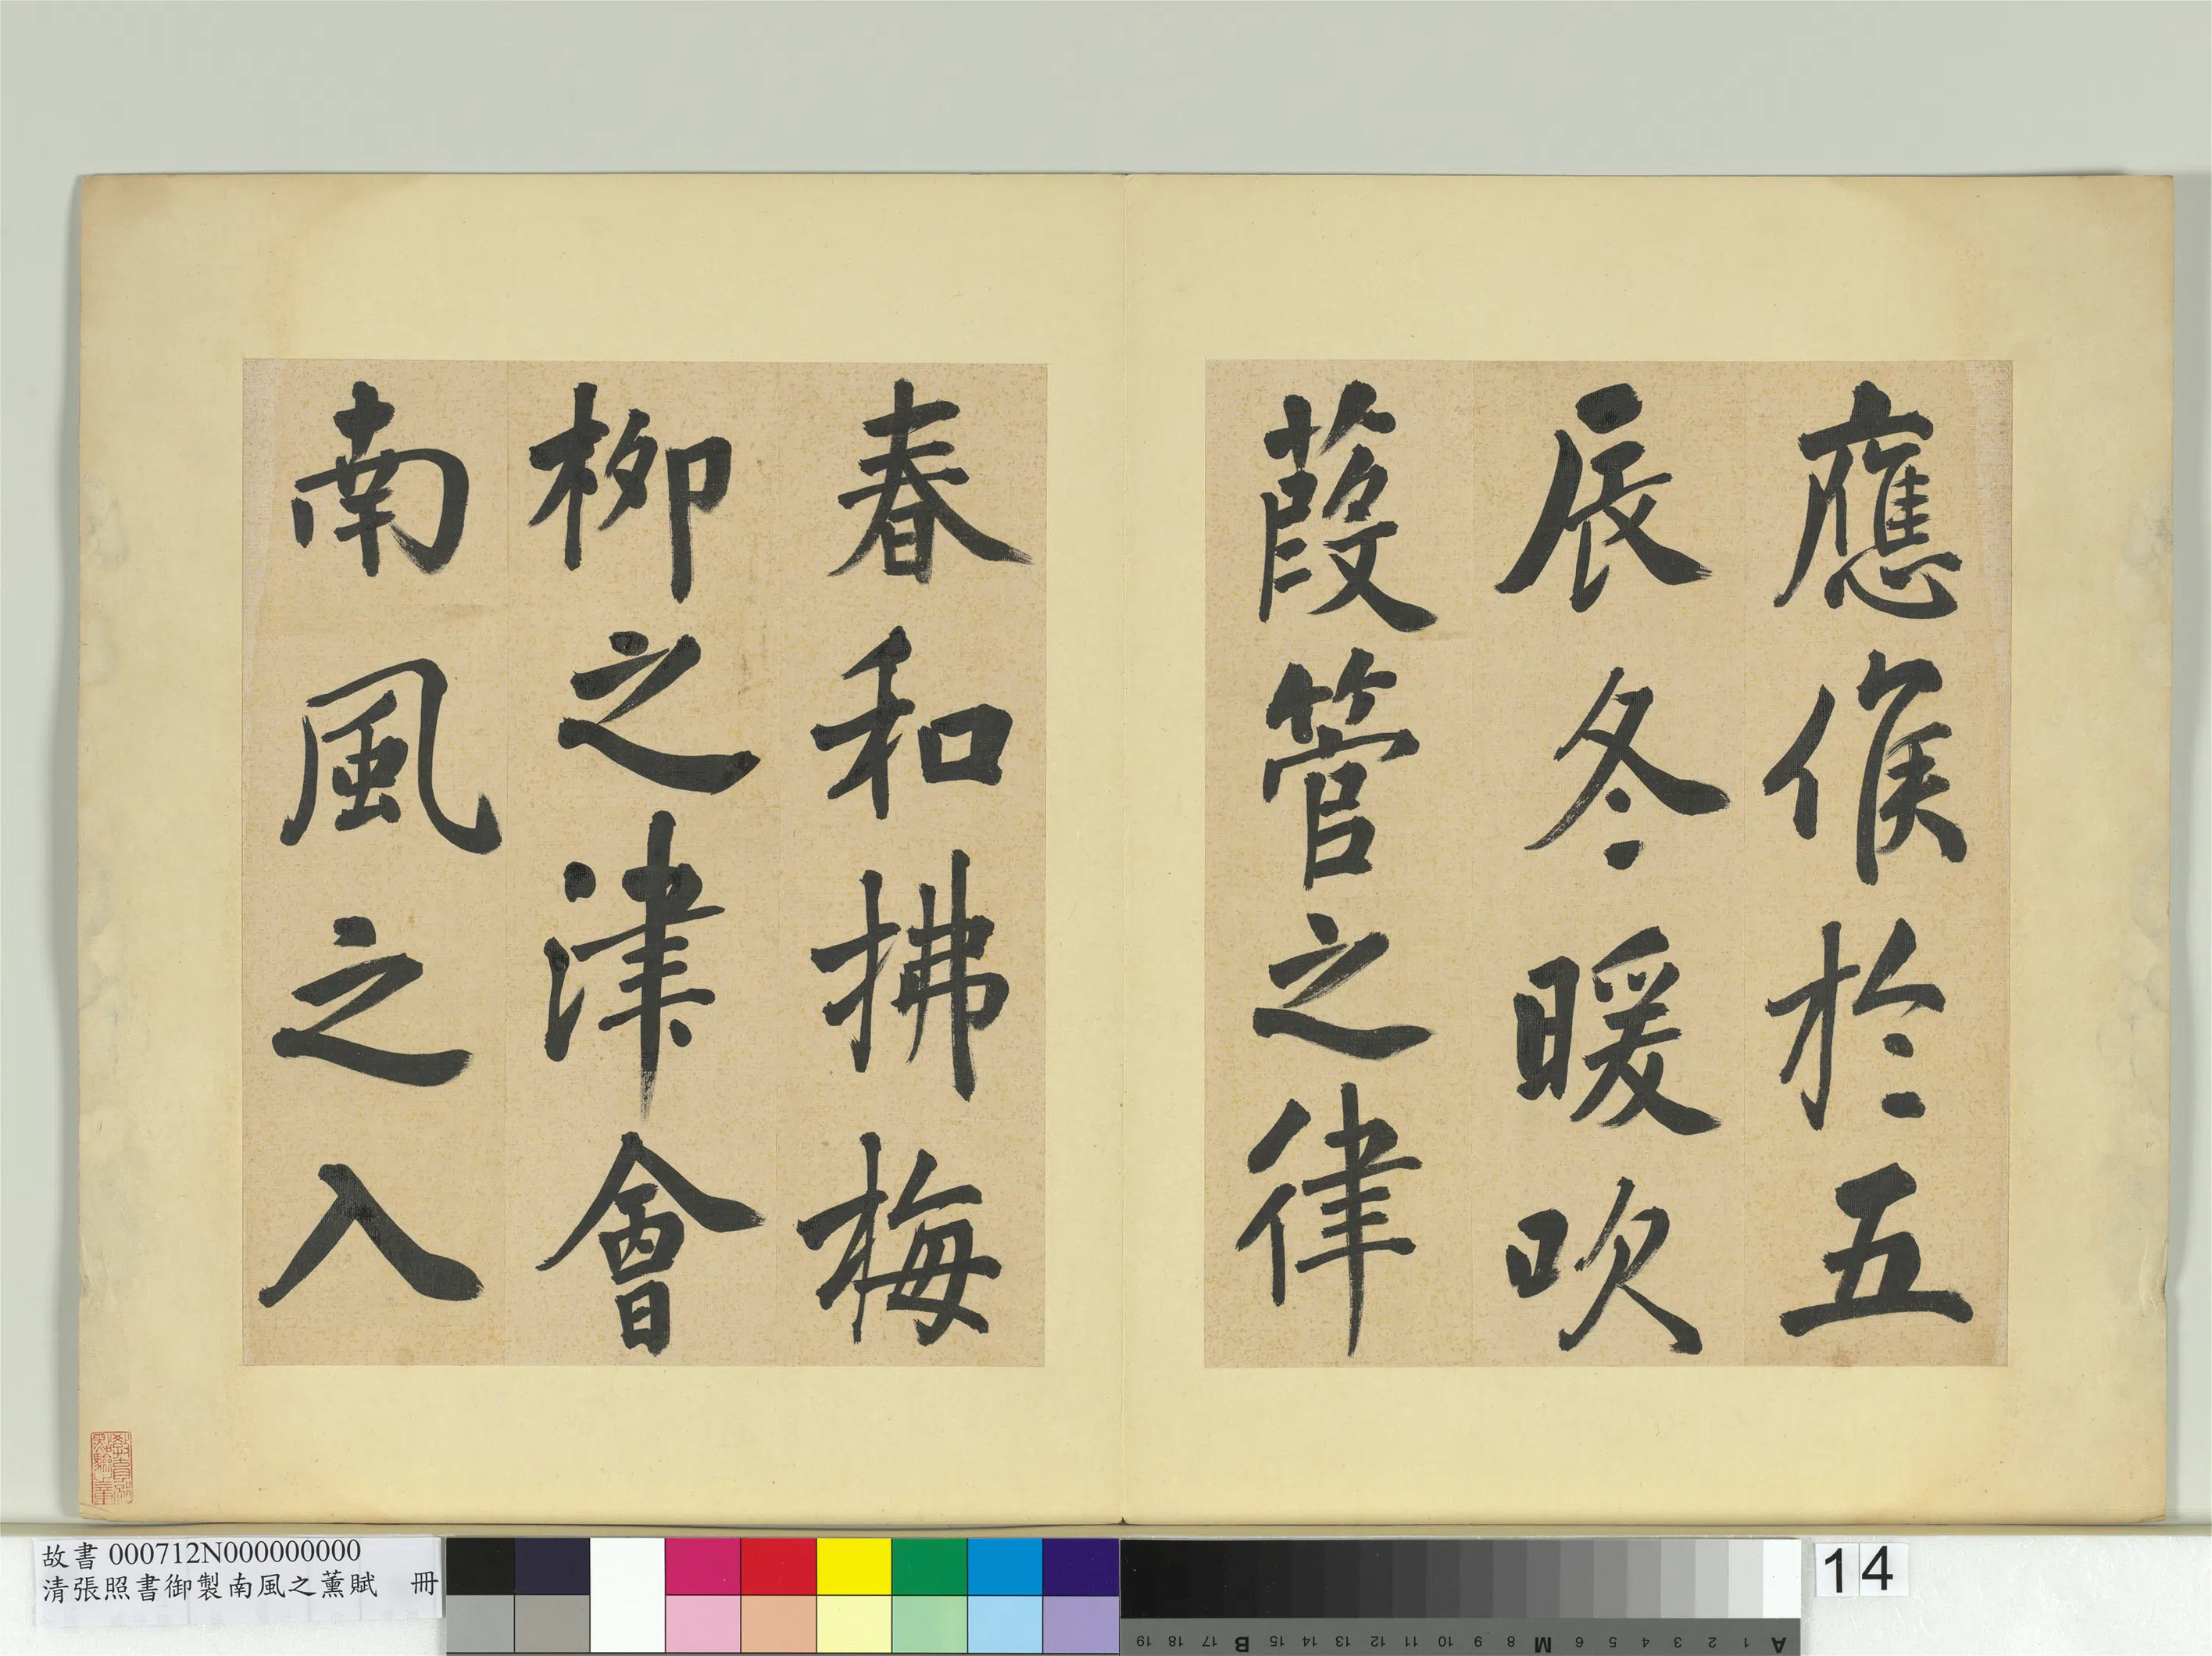 應候於五
辰冬暖吹
葭管之律
春和拂梅
柳之津會
南風之入
教育部
點驗之章
故書 000712N000000000
清張照書御製南風之薰賦 冊
14
A 1 2 3 4 5 6 M 8 9 10 11 12 13 14 15 B 17 18 19